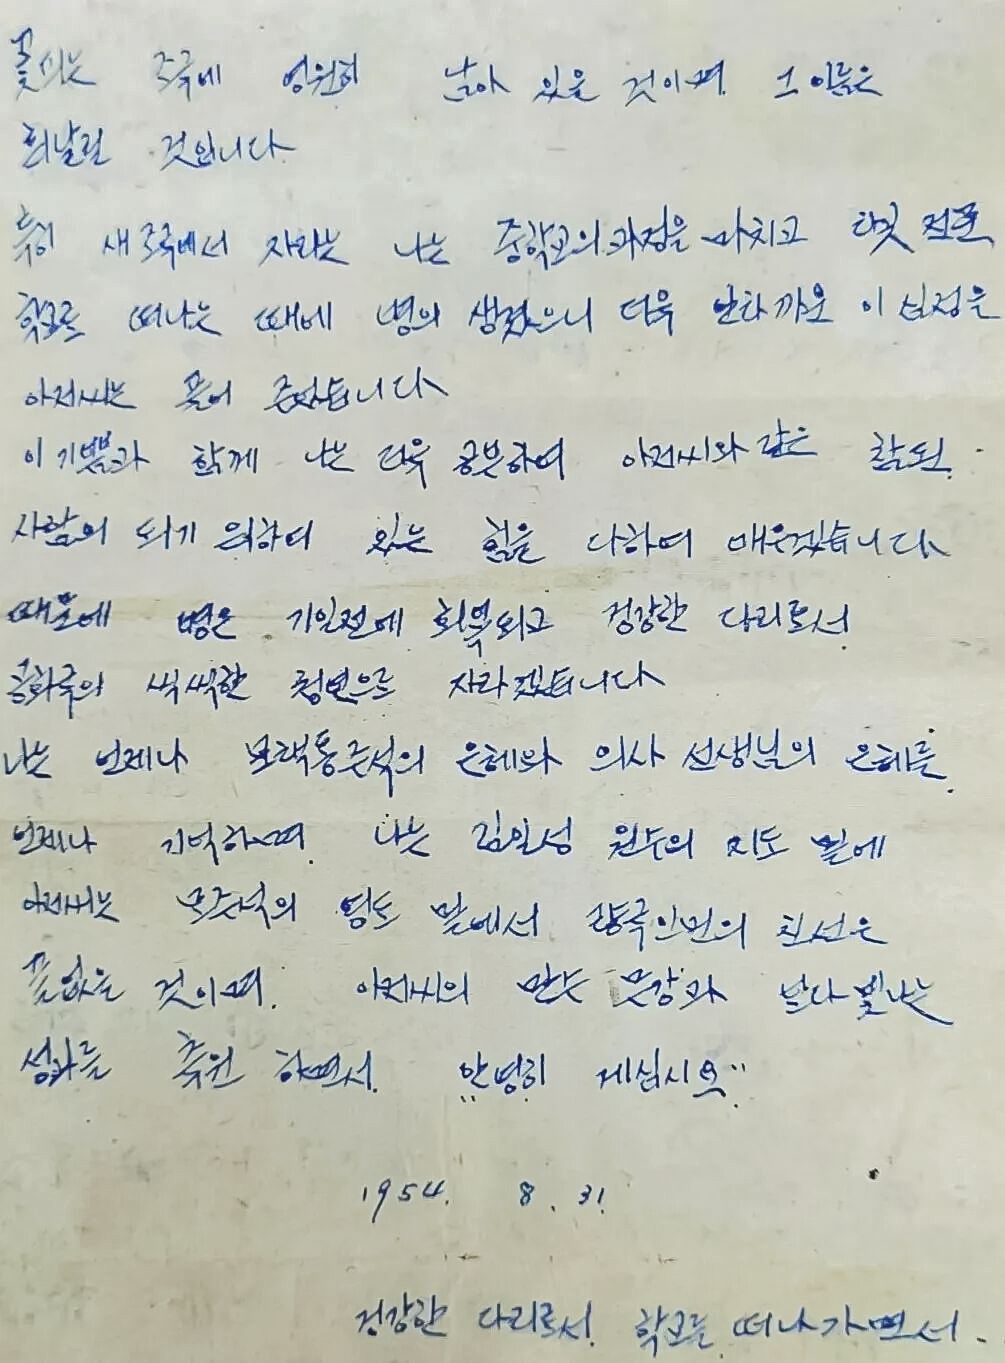 꽃피는 조국에 영원히 남아 있을 것이며. 그 이름은
휘날릴 것입니다
특히 새조국에서 자라는 나는 중학교의 과정을 마치고 전문
학교를 떠나는 때에 병의 생겼으니 더욱 안타까운 이 심정은
아저씨는 풀어 주었습니다
이 기쁨과 함께 나는 더욱 공부하여 아저씨와 같은 참된
사람의 되기 위하여 있는 힘을 다하여 배우겠습니다
때문에 병은 기일전에 회복되고 건강한 다리로서
공화국의 씩씩한 청년으로 자라겠습니다
나는 언제나 모택동주석의 은혜와 의사 선생님의 은혜를
언제나 기억하며. 나는 김일성 원수의 지도 밑에
아저씨는 모주석의 영도 밑에서 량국인민의 친선은
끝없을 것이며. 아저씨의 만수 무강과 날다 빛나는
성과를 축원 하면서. "안녕히 게십시요"
1954. 8. 31.
건강한 다리로서 학교를 떠나가면서.